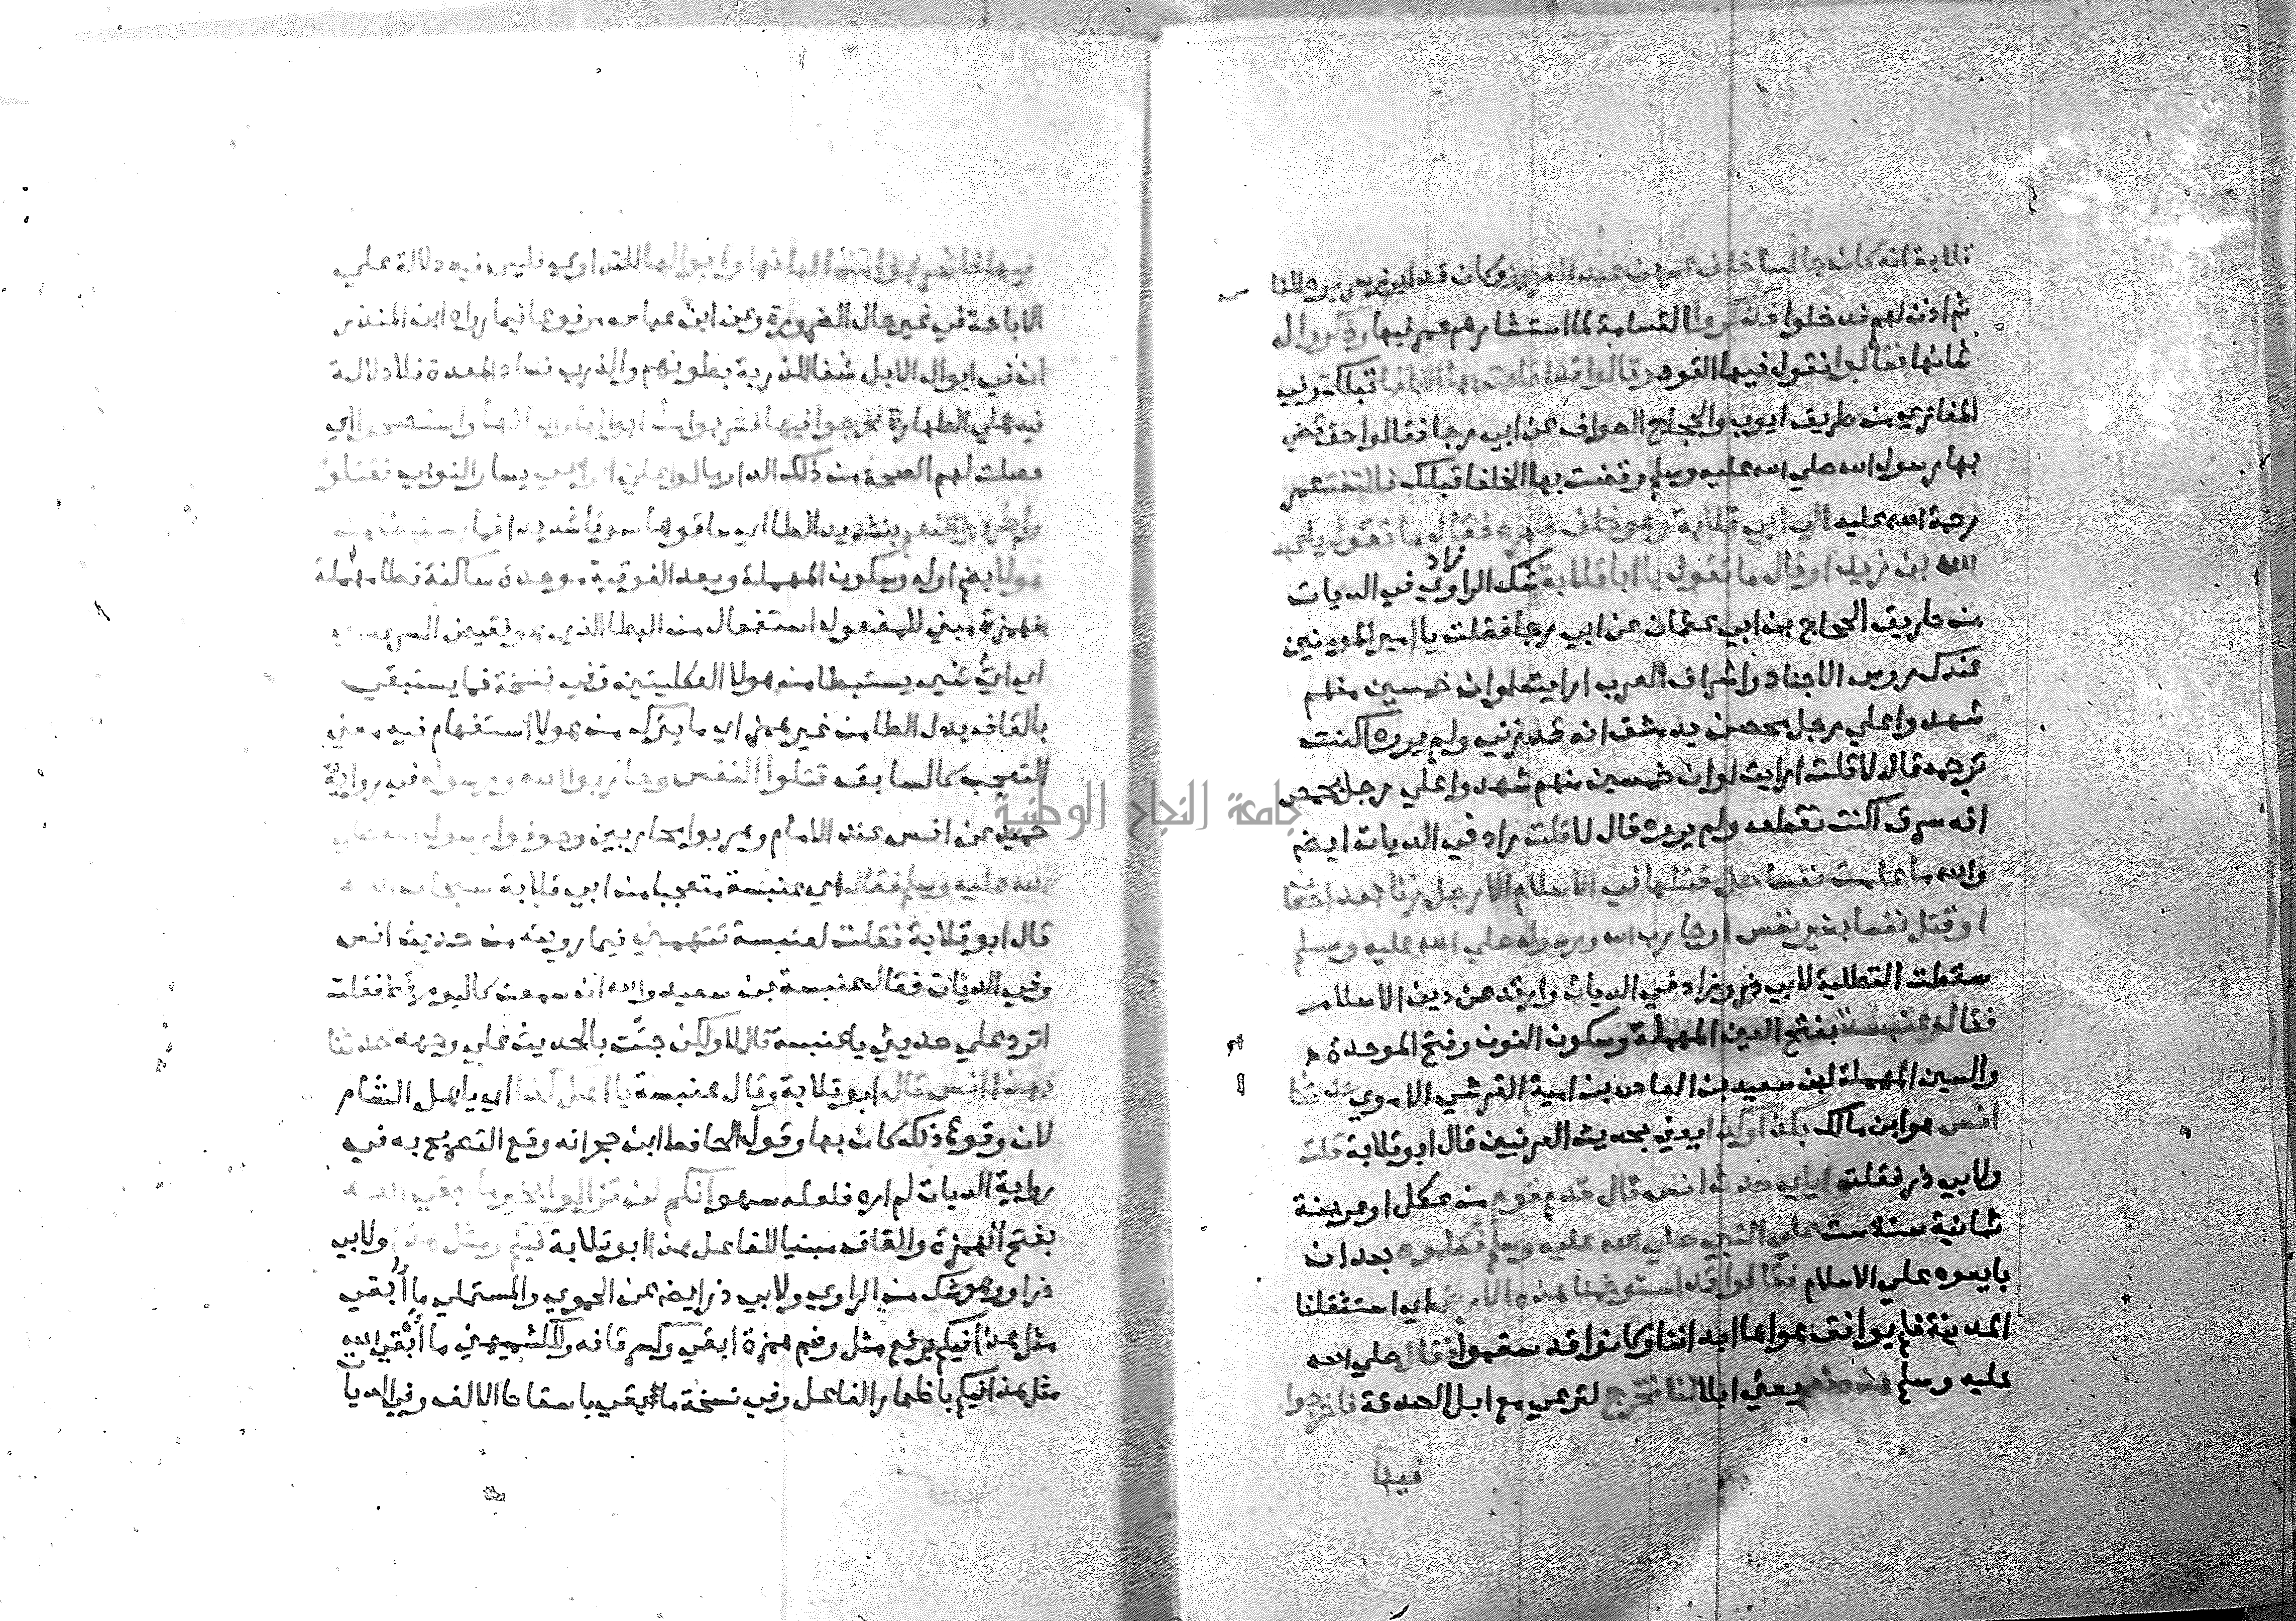 قلابة انه كان جالسا خلف عمر بن عبد العزيز وكان قد ابرز سريره للنا
س
ثم اذن لهم فدخلوا فذكروا القسامة لما استشارهم عمر فيها وذكروا له
شانها فقالوا نقول فيها القود وقالوا قد اقادت بها الخلفا قبلك وفي
المغازي من طريق ايوب والحجاج الصواف عن ابي رجا فقالوا حق قضي
بها رسول الله صلي الله عليه وسلم وقضت بها الخلفا قبلك فالتفت عمر
رحمة الله عليه الي ابي قلابة وهو خلف ظهره فقال ما تقول يا عبد
الله بن زيد او قال ما تقول يا ابا قلابة شك الراوي زاد في الديات
من طريق الحجاج بن ابي عثمان عن ابي رجا فقلت يا امير المومنين
عندك روس الاجناد واشراف العرب ارايت لو ان خمسين منهم
شهدوا علي رجل محصن بدمشق انه قد زني ولم يروه اكنت
ترجمه قال لا قلت ارايت لو ان خمسين منهم شهدوا علي رجل بحمص
انه سرق اكنت تقطعه ولم يروه قال لا قلت زاد في الديات ايضا
والله ما علمت نفسا حل قتلها في الاسلام الا رجل زنا بعد احصان
او قتل نفسا بغير نفس او حارب الله ورسوله صلي الله عليه وسلم
سقطت التصلية لابي ذر وزاد في الديات وارتد عن دين الاسلام
فقال عنبسة بفتح العين المهملة وسكون النون وفتح الموحدة
والسين المهملة ابن سعيد بن العاص بن امية القرشي الاموي حدثنا
انس هو ابن مالك بكذا وكذا يعني بحديث العرنيين قال ابو قلابة قلت
ولابي ذر فقلت اياي حدث انس قال قدم قوم من عكل او عرينة
ثمانية سنة ست علي النبي صلي الله عليه وسلم فكلموه بعد ان
بايعوه علي الاسلام فقالوا قد استوخمنا هذه الارض اي استثقلنا
المدينة فلم يوافق هواها ابداننا وكانوا قد سقموا فقال صلي الله
عليه وسلم هذه نعم يعني ابلا لنا تخرج لترعي مع ابل الصدقة فاخرجوا
فيها
فيها فاشربوا من البانها وابوالها للتداوي فليس فيه دلالة علي
الاباحة في غير حال الضرورة وعن ابن عباس مرفوعا فيما رواه ابن المنذر
ان في ابوال الابل شفا للذربة بطونهم والذرب فساد المعدة فلا دلالة
فيه علي الطهارة فخرجوا فيها فشربوا من ابوالها والبانها واستصحوا اي
حصلت لهم الصحة من ذلك الدا ومالوا علي الراعي يسار النوبي فقتلوه
واطردوا النعم بتشديد الطا اي ساقوها سوقا شديدا فما يستبطا من
هولا بضم اوله وسكون المهملة وبعد الفوقية موحدة ساكنة فطا مهملة
فهمزة مبني للمفعول استفعال من البطا الذي هو نقيض السرعة
اي اي شي يستبطا من هولا العكليين وفي نسخة فما يستبقي
بالقاف بدل الطا من غير همز اي ما يترك من هولا استفهام فيه معني
التعجب كالسابق قتلوا النفس وحاربوا الله ورسوله في رواية
حميد عن انس عند الامام وهربوا محاربين وخوفوا رسول الله صلي
الله عليه وسلم فقال اي عنبسة متعجبا من ابي قلابة سبحان الله
قال ابو قلابة فقلت لعنبسة تتهمني فيما رويته من حديث انس
وفي الديات فقال عنبسة بن سعيد والله ان سمعت كاليوم قط فقلت
اترد علي حديثي يا عنبسة قال لا ولكن جئت بالحديث علي وجهه حدثنا
بهذا انس قال ابو قلابة وقال عنبسة يا اهل كذا اي يا اهل الشام
لان وقوع ذلك كان بها وقول الحافظ ابن حجر انه وقع التصريح به في
رواية الديات لم اره فلعله سهو انكم لن تزالوا بخير ما ابقي الله
بفتح الهمزة والقاف مبنيا للفاعل هذا ابو قلابة فيكم ومثل هذا ولابي
ذر او وهو شك من الراوي ولابي ذر ايضا عن الحموي والمستملي ما ابقي
مثل هذا فيكم برفع مثل وضم همزة ابقي وكسر قافه وللكشميهني ما ابقي الله
مثل هذا فيكم باظهار الفاعل وفي نسخة ما بقي باسقاط الالف وفي الديات
جامعة النجاح الوطنية